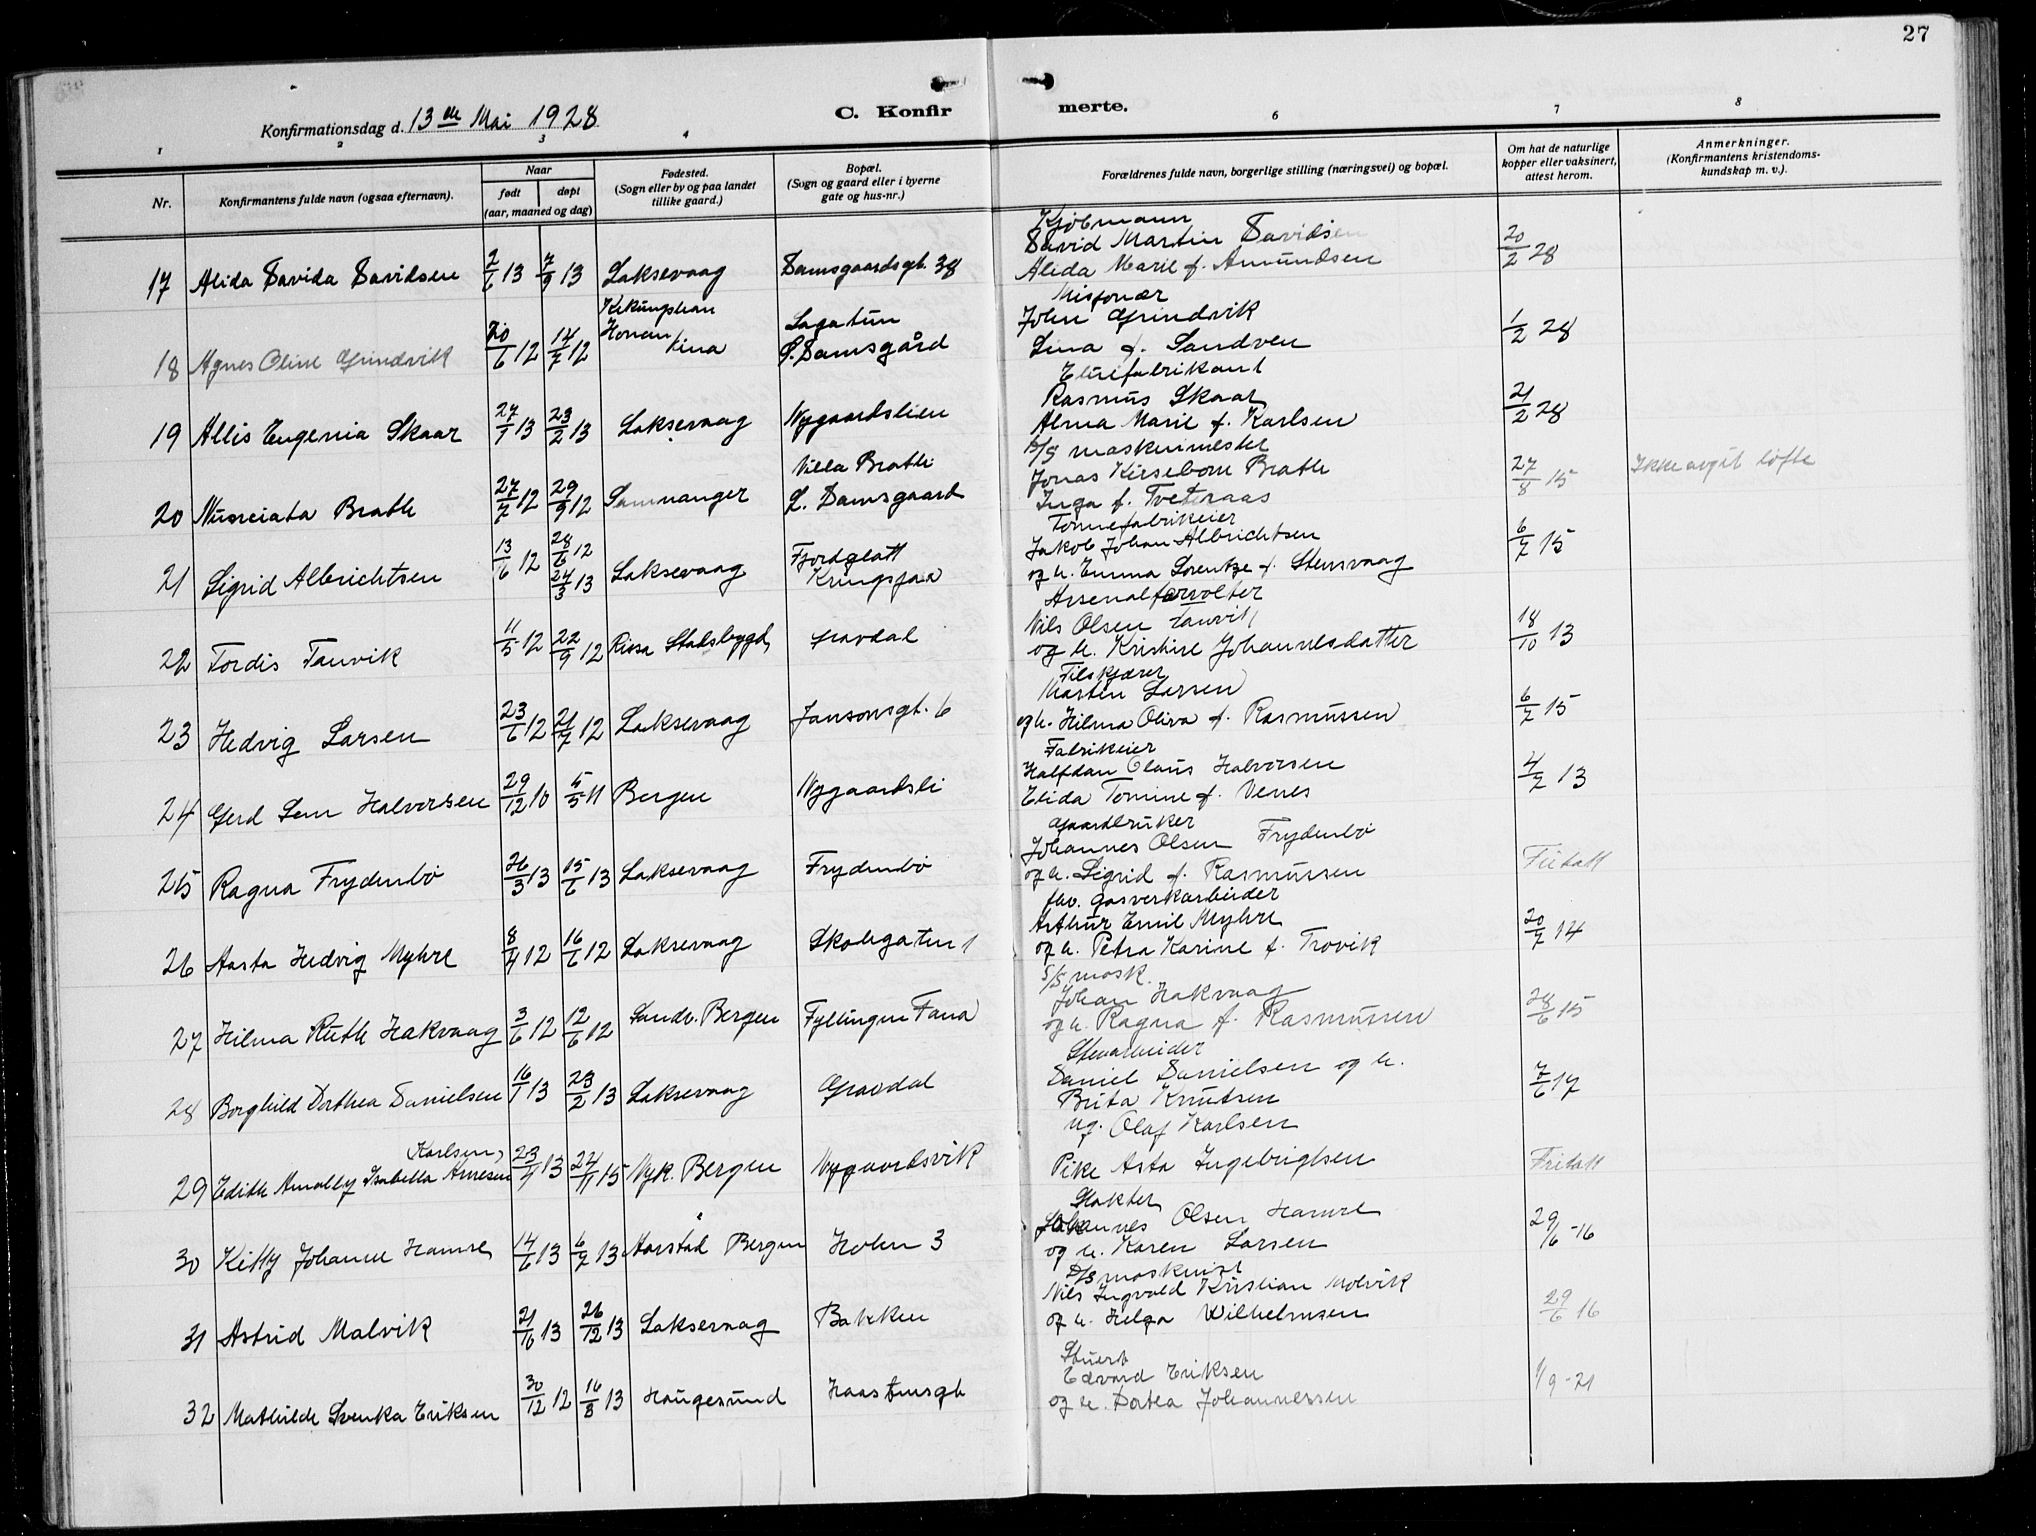 27
Konfirmationsdag d. 13de Mai 1928
C. Konfirmerte.
1 2 3 4 6 7 8
Nr.
Konfirmantens fulde navn (ogsaa efternavn).
Naar
født
døpt
(aar, maaned og dag)
Fødested.
(Sogn eller by og paa landet
tillike gaard.)
Bopæl.
(Sogn og gaard eller i byerne
gate og hus-nr.)
Forældrenes fulde navn, borgerlige stilling (næringsvei) og bopæl.
Om hat de naturlige
kopper eller vaksinert,
attest herom.
Anmerkninger.
(Konfirmantens kristendoms-
kundskap m. v.).
Kjøbmann
David Martin Davidsen
17 Alida Davida Davidsen 2/6 13 7/9 13 Laksevaag Damsgaardsgt. 38 Alida Marie f. Amundsen 20/2 28
Misjonær
Honan Kina Lagatun John Grindvik
18 Agnes Oline Grindvik 20/6 12 14/7 12 L. Damsgård Lina f. Sandven 1/2 28
Rasmus Skaar
19 Allis Eugenia Skaar 27/1 13 23/2 13 Laksevaag Nygaardslien Alma Marie f. Karlsen 21/2 28
D/S maskinmester
Villa Brathe Jonas Kirsebom Brathe
20 Nunciata Brathe 27/7 12 29/9 12 Samnanger L. Damsgaard Inga f. Tveteraas 27/8 15 Ikke avgit løfte
Tønnefabrikeier
28/6 12 Fjordglatt Jakob Johan Albrichtsen
21 Sigrid Albrichtsen 13/6 12 24/3 13 Laksevaag Kringsjaa og h. Emma Lorentze f. Stensvaag 6/7 15
Arsenalforvolter
Nils Olsen Tanvik
22 Tordis Tanvik 11/5 12 22/9 12 Rissa Stadsbygd Gravdal og h. Kristine Johannesdatter 18/10 13
Martin Larsen
23 Hedvig Larsen 23/6 12 21/7 12 Laksevaag Jansonsgt. 6 og h. Hilma Oliva f. Rasmussen 6/7 15
Fabrikeier
Halfdan Claus Halvorsen
24 Gerd Sem Halvorsen 29/12 10 5/5 11 Bergen Nygaardsli Elida Tomine f. Venes 4/7 13
Gaardbruker
Johannes Olsen Frydenbø
25 Ragna Frydenbø 26/3 13 15/6 13 Laksevaag Frydenbø og h. Sigrid f. Rasmussen Fritatt
fhv. gasverkarbeider
Arthur Emil Myhre
26 Aasta Hedvig Myhre 8/4 12 16/6 12 Laksevaag Skolegaten 1 og h. Petra Karine f. Trovik 20/7 14
S/S mask.
Johan Hakvaag
27 Hilma Ruth Hakvaag 3/6 12 12/6 12 Sandv. Bergen Fyllingen Fana og h. Ragna f. Rasmussen 28/6 15
Stenarbeider
Daniel Danielsen og h.
28 Borghild Dorthea Danielsen 16/1 13 23/2 13 Laksevaag Gravdal Brita Knutsen 7/6 17
Karlsen ug. Olaf Karlsen
29 Edith Amally Isabella Arnesen 23/4 13 24/11 15 Nyk. Bergen Nygaardsvik Pike Asta Ingebrigtsen Fritatt
Slakter
Johannes Olsen Hamre
30 Kitty Johanne Hamre 14/6 13 6/7 13 Aarstad Bergen Holen 3 og h. Karen Larsen 29/6-16
D/S maskinist
Nils Ingvald Kristian Malvik
31 Astrid Malvik 21/10 13 26/12 13 Laksevaag Bakken og h. Helga Wilhelmsen 29/6 16
Stuert
Edvard Eriksen
32 Mathilde Svenka Eriksen 30/12 12 16/8 13 Haugesund og h. Dortea Johannessen 1/9-21